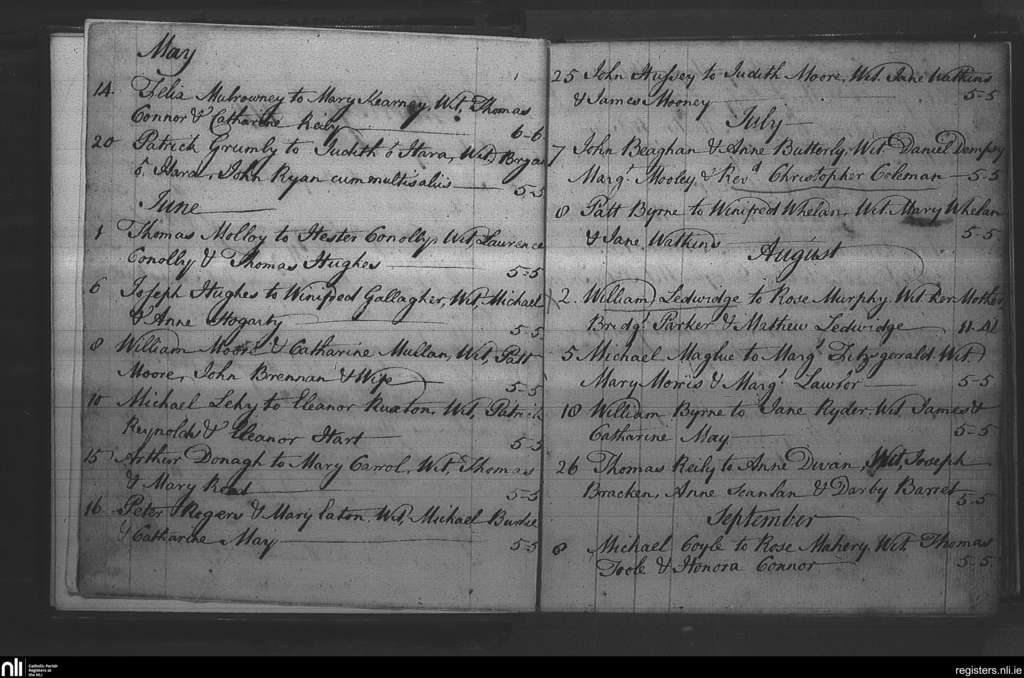 May
14 Felix Mulrowney to Mary Kearney, Wit, Thomas
Connor & Catharine Reily 6-6
20 Patrick Grumly to Judith ó Hara, Wit, Bryan
ó Hara, John Ryan cum multis aliis 5-5
June
1 Thomas Molloy to Hester Conolly, Wit, Laurence
Conolly & Thomas Hughes 5-5
6 Joseph Hughes to Winifred Gallagher, Wit, Michael
& Anne Hogarty 5-5
8 William Moore & Catharine Mullan, Wit, Patt
Moore, John Brennan & Wife 5-5
10 Michael Lehy to Eleanor Ruxton, Wit, Patrick
Reynolds & Eleanor Hart 5-5
15 Arthur Donagh to Mary Carrol, Wit, Thomas
& Mary Read 5-5
16 Peter Rogers & Mary Eaton, Wit, Michael Burke
& Catharine May 5-5
25 John Hussey to Judith Moore, Wit. Jane Watkins
& James Mooney 5-5
July
7 John Beaghan & Anne Butterly, Wit Daniel Dempsy
Margt Mooley & Revd Christopher Coleman 5-5
8 Patt Byrne to Winifred Whelan, Wit. Mary Whelan
& Jane Watkins 5-5
August
2 William Ledwidge to Rose Murphy, Wit her Mother
Bridgt Parker & Mathew Ledwidge
5 Michael Maglue to Margt Fitzgerald Wit,
Mary Morris & Margt Lawlor 5-5
10 William Byrne to Jane Ryder, Wit, James &
Catharine May 5-5
26 Thomas Reily to Anne Divan, Wit, Joseph
Bracken, Anne Scanlan & Darby Barret 5-5
September
6 Michael Coyle to Rose Mahery, Wit. Thomas
Toole & Honora Connor 5-5
nli Catholic Parish
Registers at
the NLI
registers.nli.ie